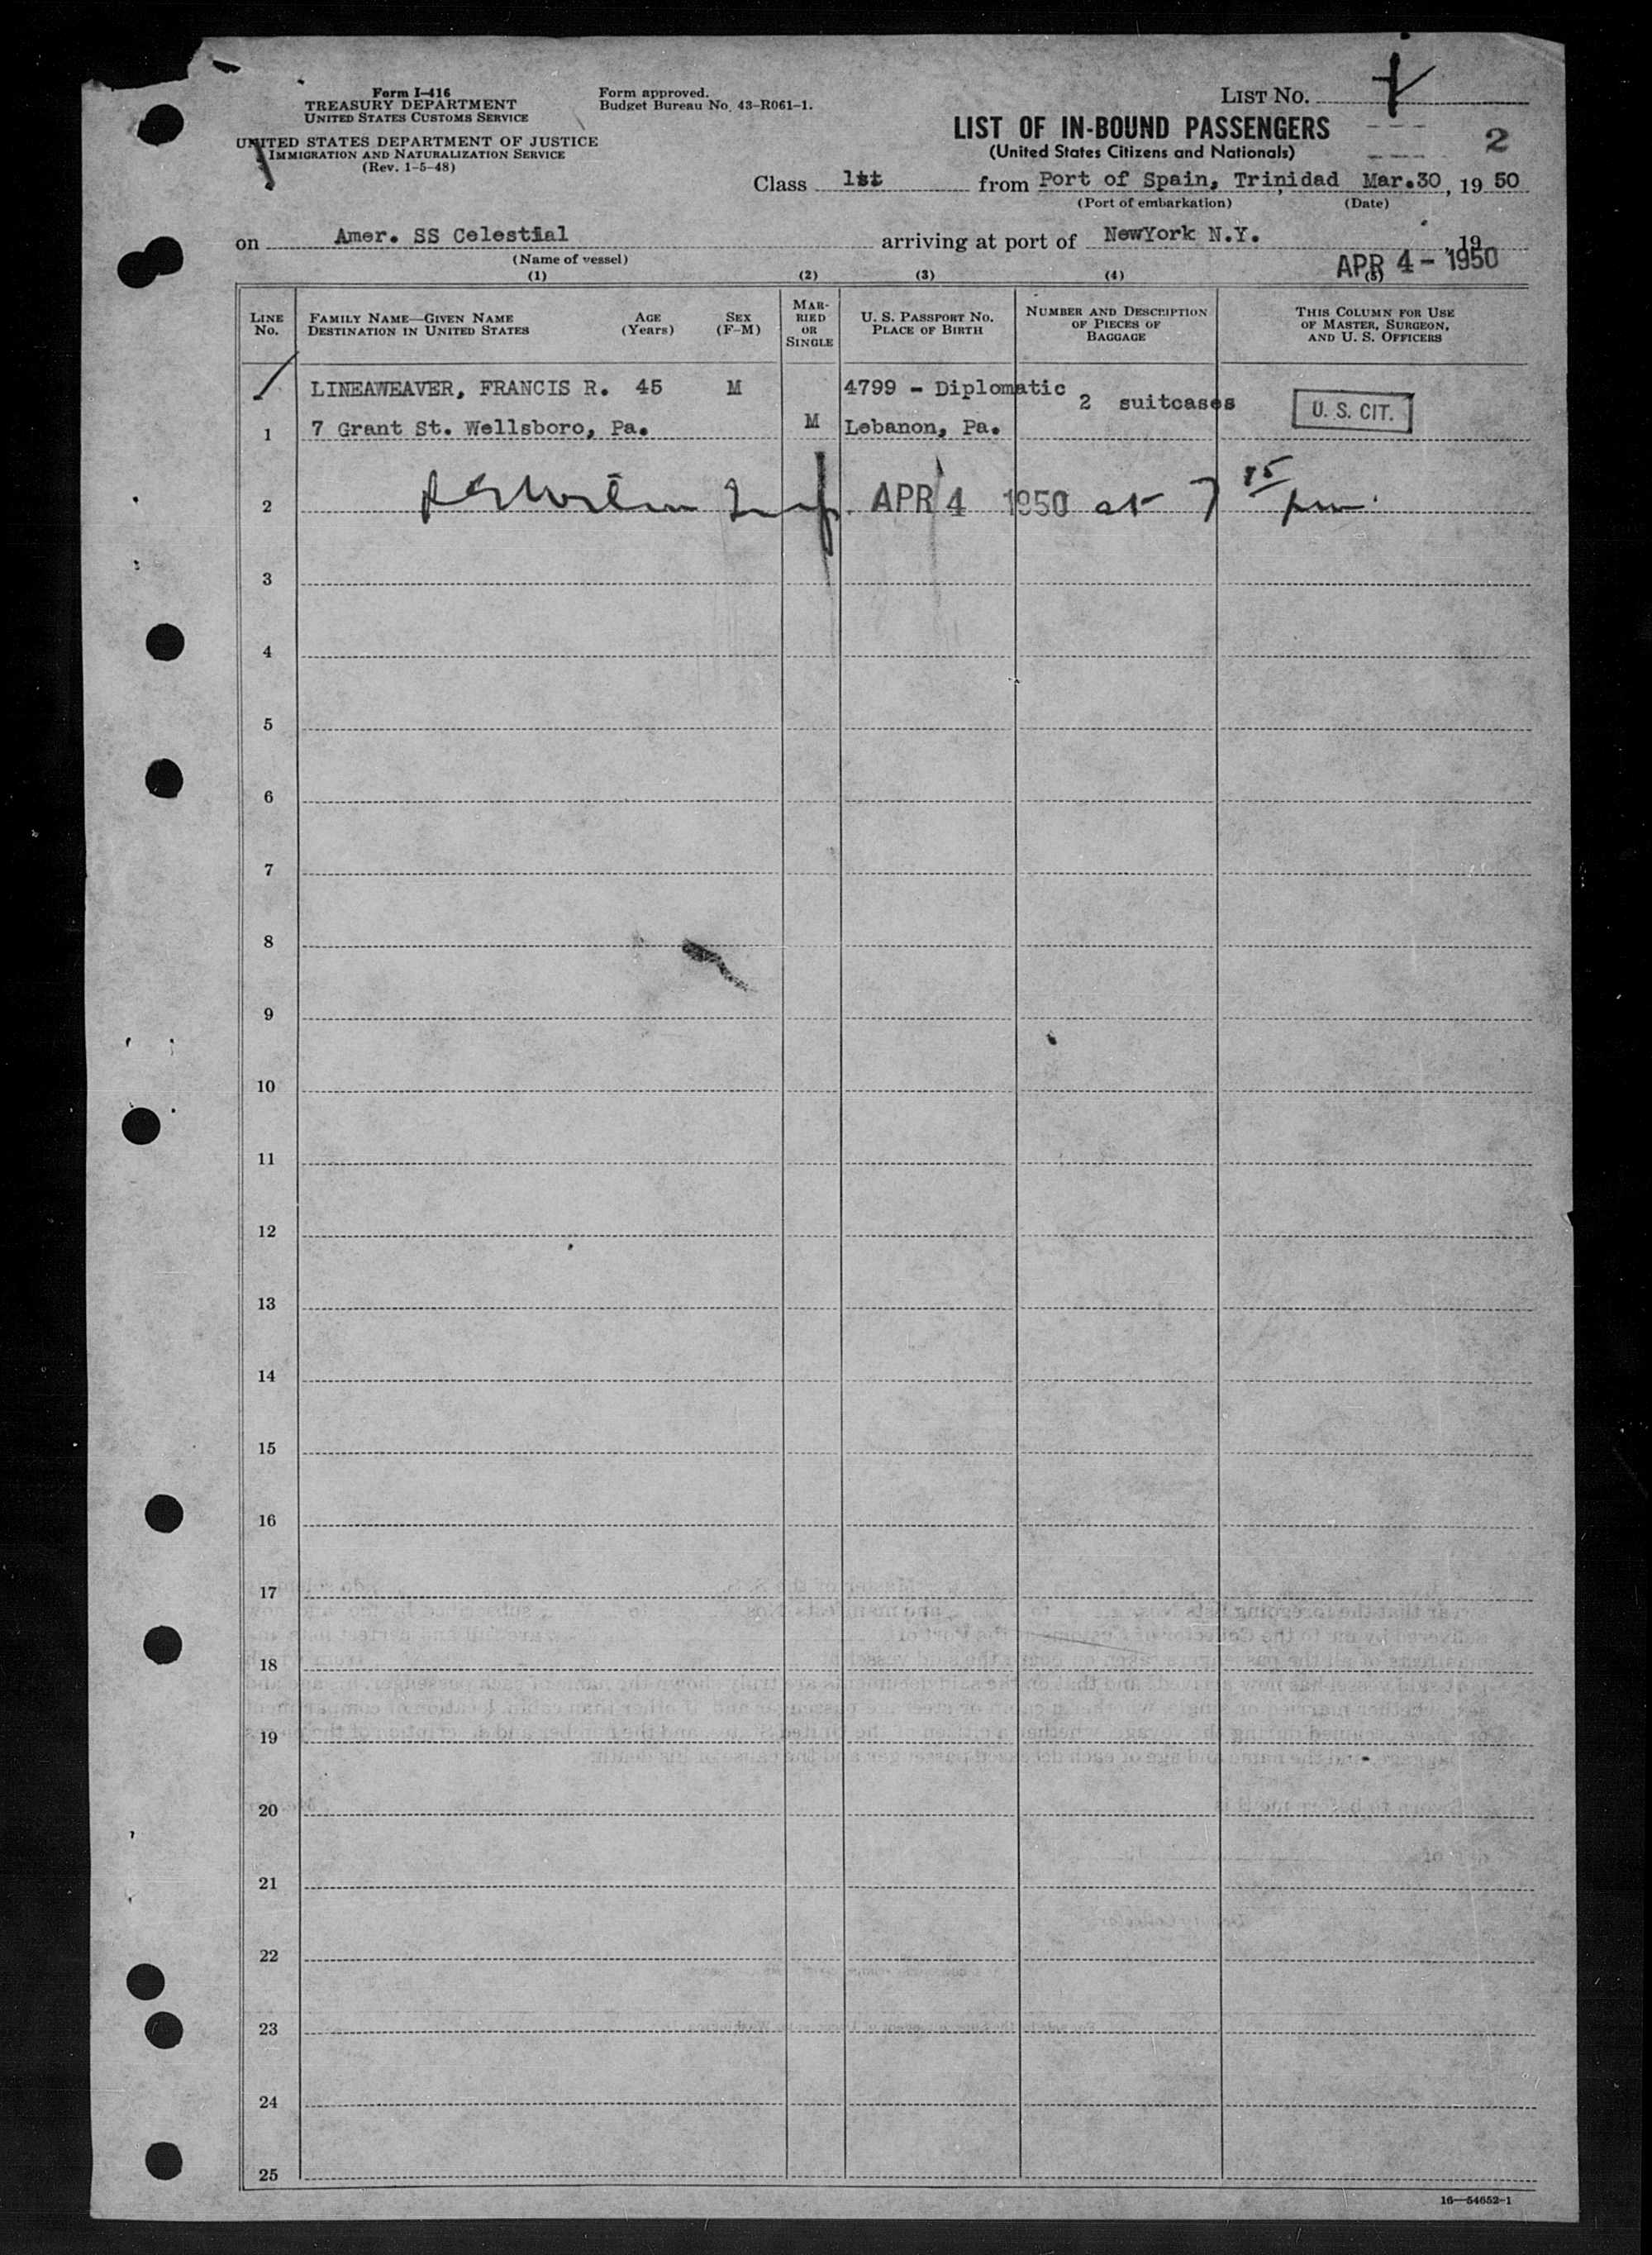 Form I-416
TREASURY DEPARTMENT
UNITED STATES CUSTOMS SERVICE
UNITED STATES DEPARTMENT OF JUSTICE
IMMIGRATION AND NATURALIZATION SERVICE
(Rev. 1-5-48)
Form approved.
Budget Bureau No. 43-R061-1.
LIST NO.
LIST OF IN-BOUND PASSENGERS
(United States Citizens and Nationals)
2
Class 1st from Port of Spain, Trinidad Mar.30, 19 50
(Port of embarkation) (Date)
on Amer. SS Celestial arriving at port of NewYork N.Y. , 19
(Name of vessel)
APR 4 - 1950
(1) (2) (3) (4) (5)
LINE No. FAMILY NAME—GIVEN NAME DESTINATION IN UNITED STATES AGE (Years) SEX (F-M) MARRIED OR SINGLE U. S. PASSPORT NO. PLACE OF BIRTH NUMBER AND DESCRIPTION OF PIECES OF BAGGAGE THIS COLUMN FOR USE OF MASTER, SURGEON, AND U. S. OFFICERS
LINEAWEAVER, FRANCIS R. 45 M 4799 - Diplomatic
2 suitcases U. S. CIT.
1 7 Grant St. Wellsboro, Pa. M Lebanon, Pa.
2 APR 4 1950 at 7 pm
3
4
5
6
7
8
9
10
11
12
13
14
15
16
17
18
19
20
21
22
23
24
25
16—54652-1